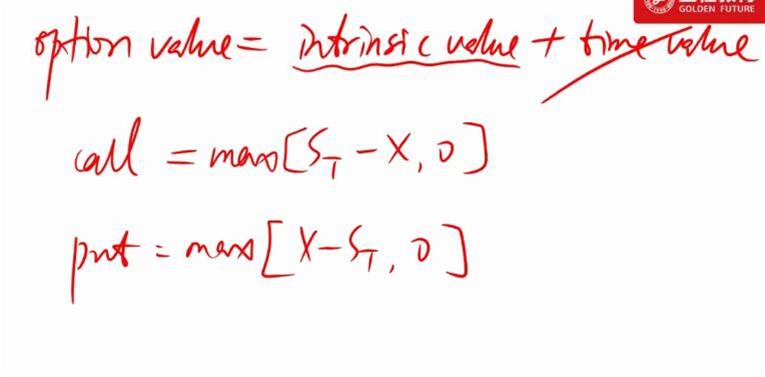 GOLDEN FUTURE
option value = intrinsic value + time value
call = max[S_T - X, 0]
put = max[X - S_T, 0]